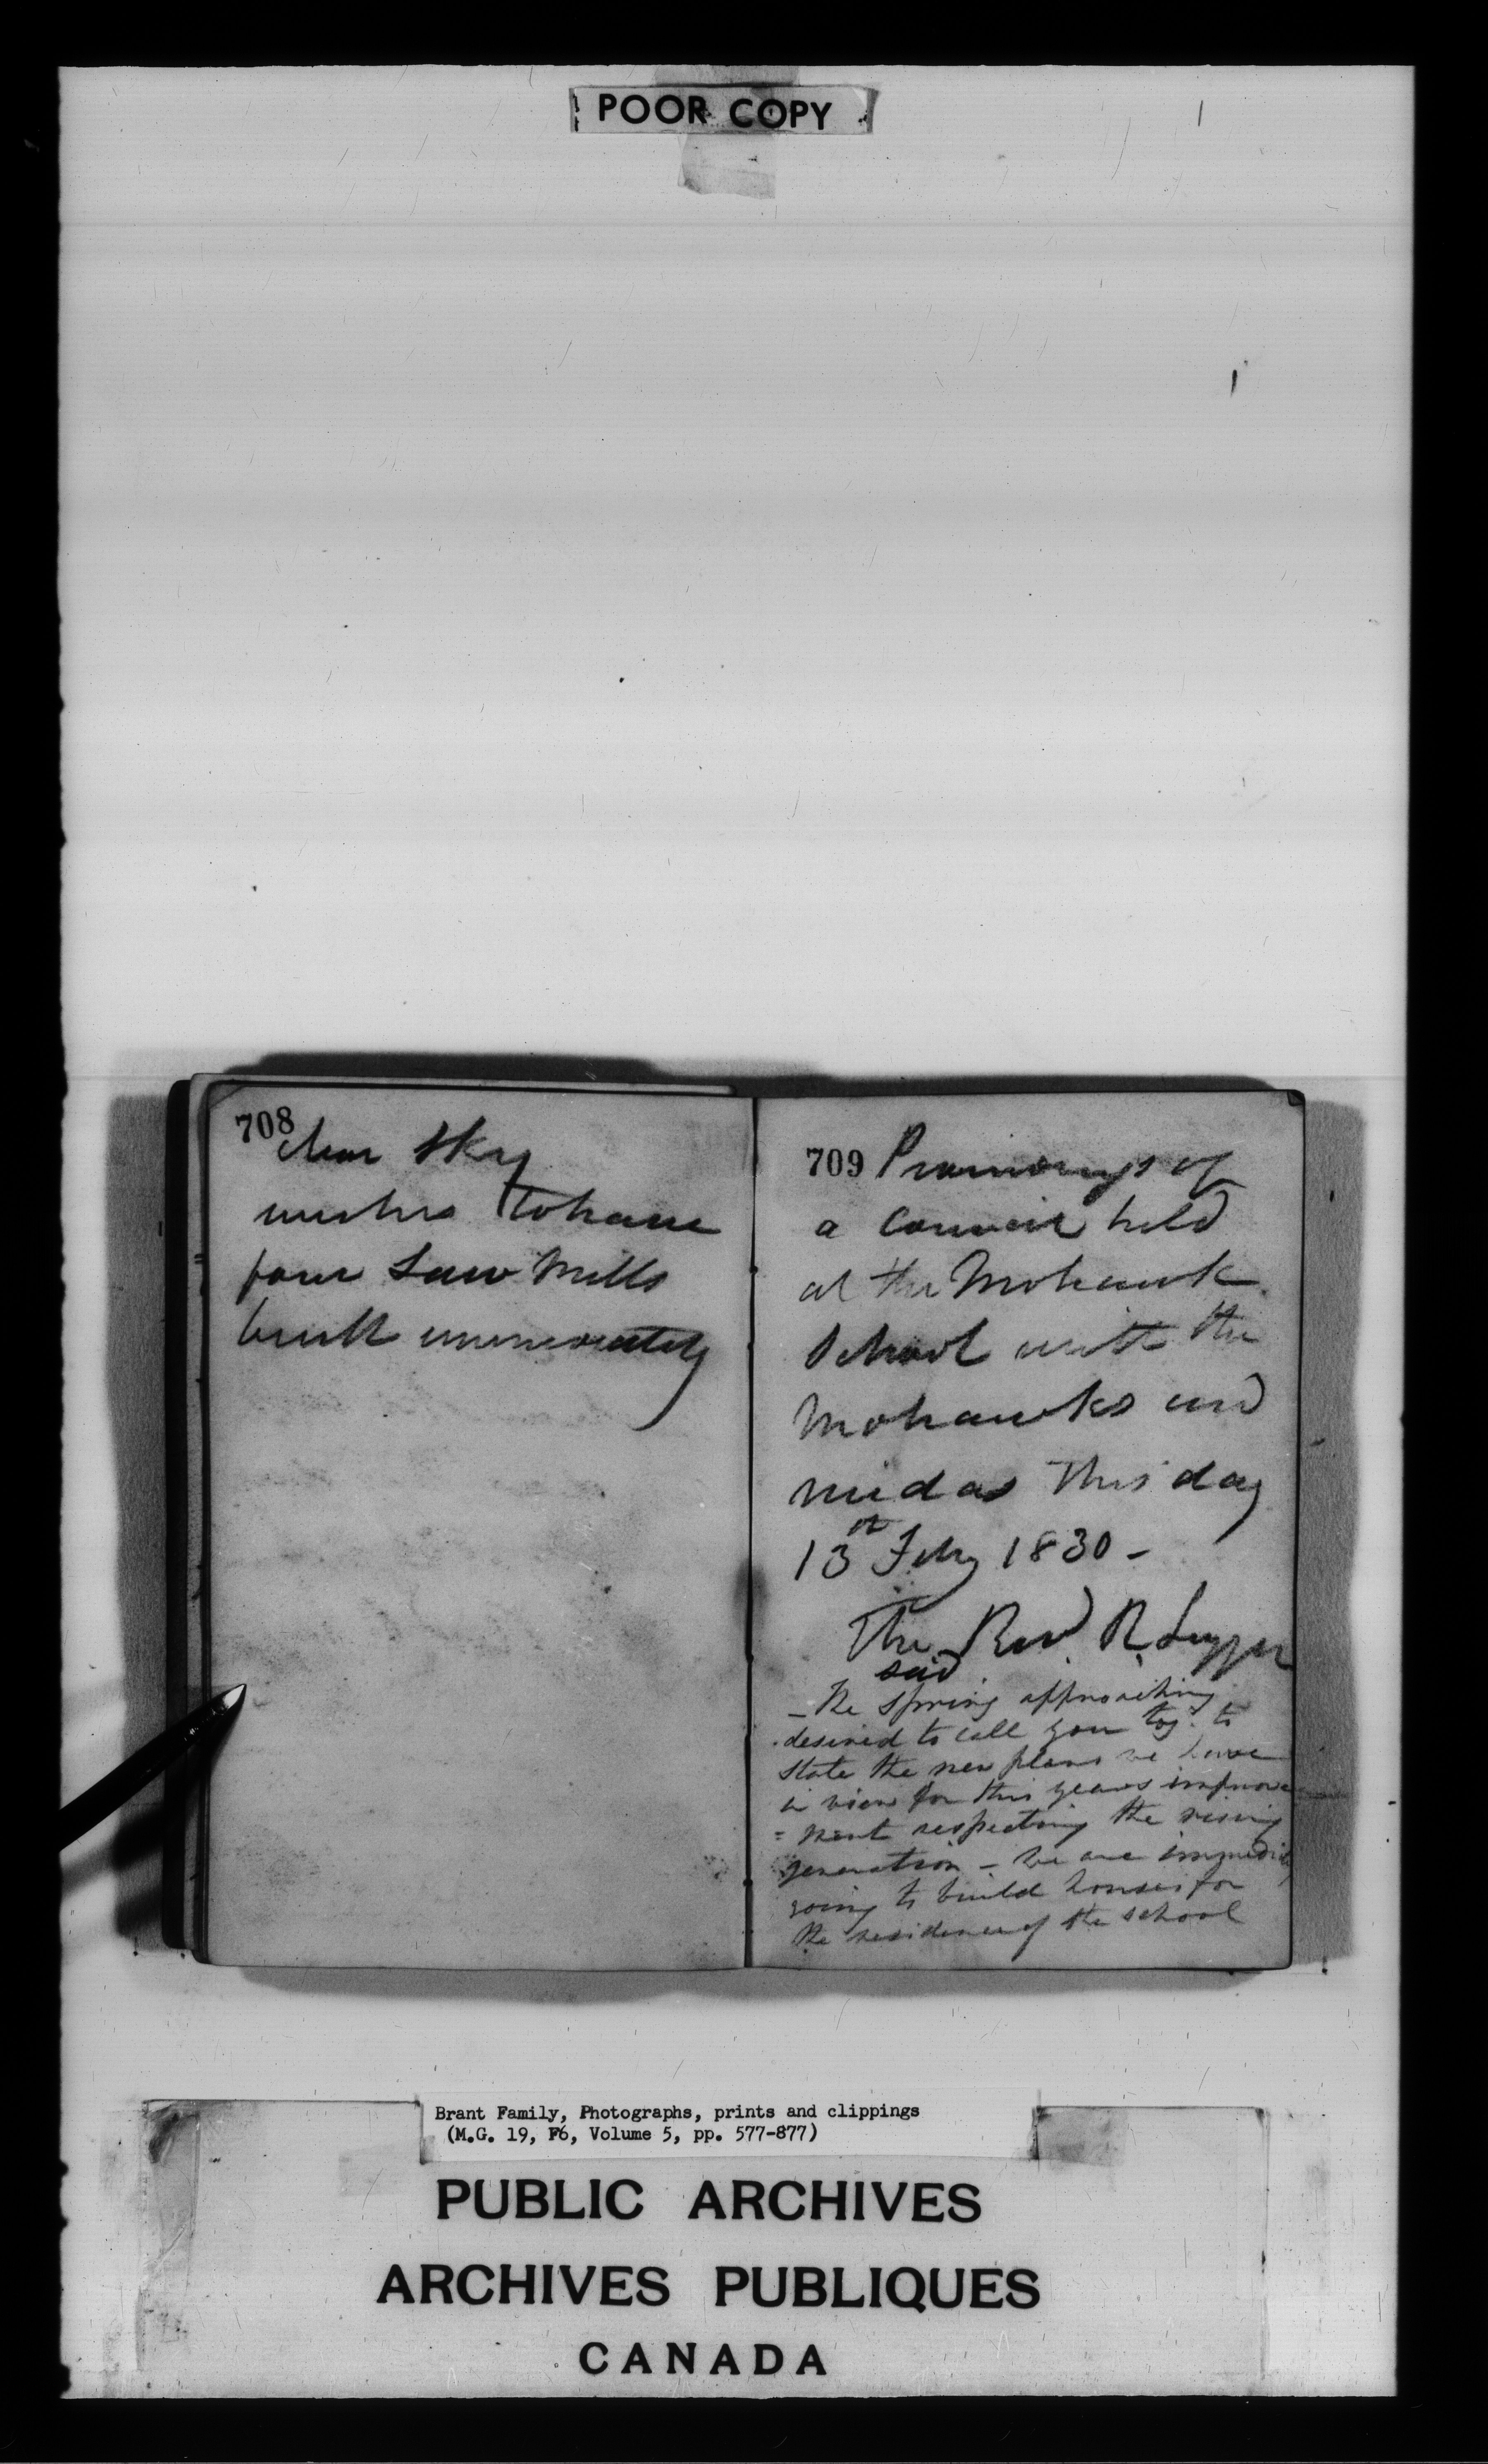 POOR COPY
708
Clear Sky
wishes to have
four Saw Mills
built immediately
709 Proceedings of
a Council held
at the Mohawk
School with the
Mohawks and
this day
13th Feby 1830 -
The Revd R. Lugger
said
- The spring approaching
desired to call you tog. to
state the new plans we have
in view for this years improve
= ment respecting the rising
generation - We are
going to build houses for
the residence of the school
Brant Family, Photographs, prints and clippings
(M.G. 19, F6, Volume 5, pp. 577-877)
PUBLIC ARCHIVES
ARCHIVES PUBLIQUES
CANADA